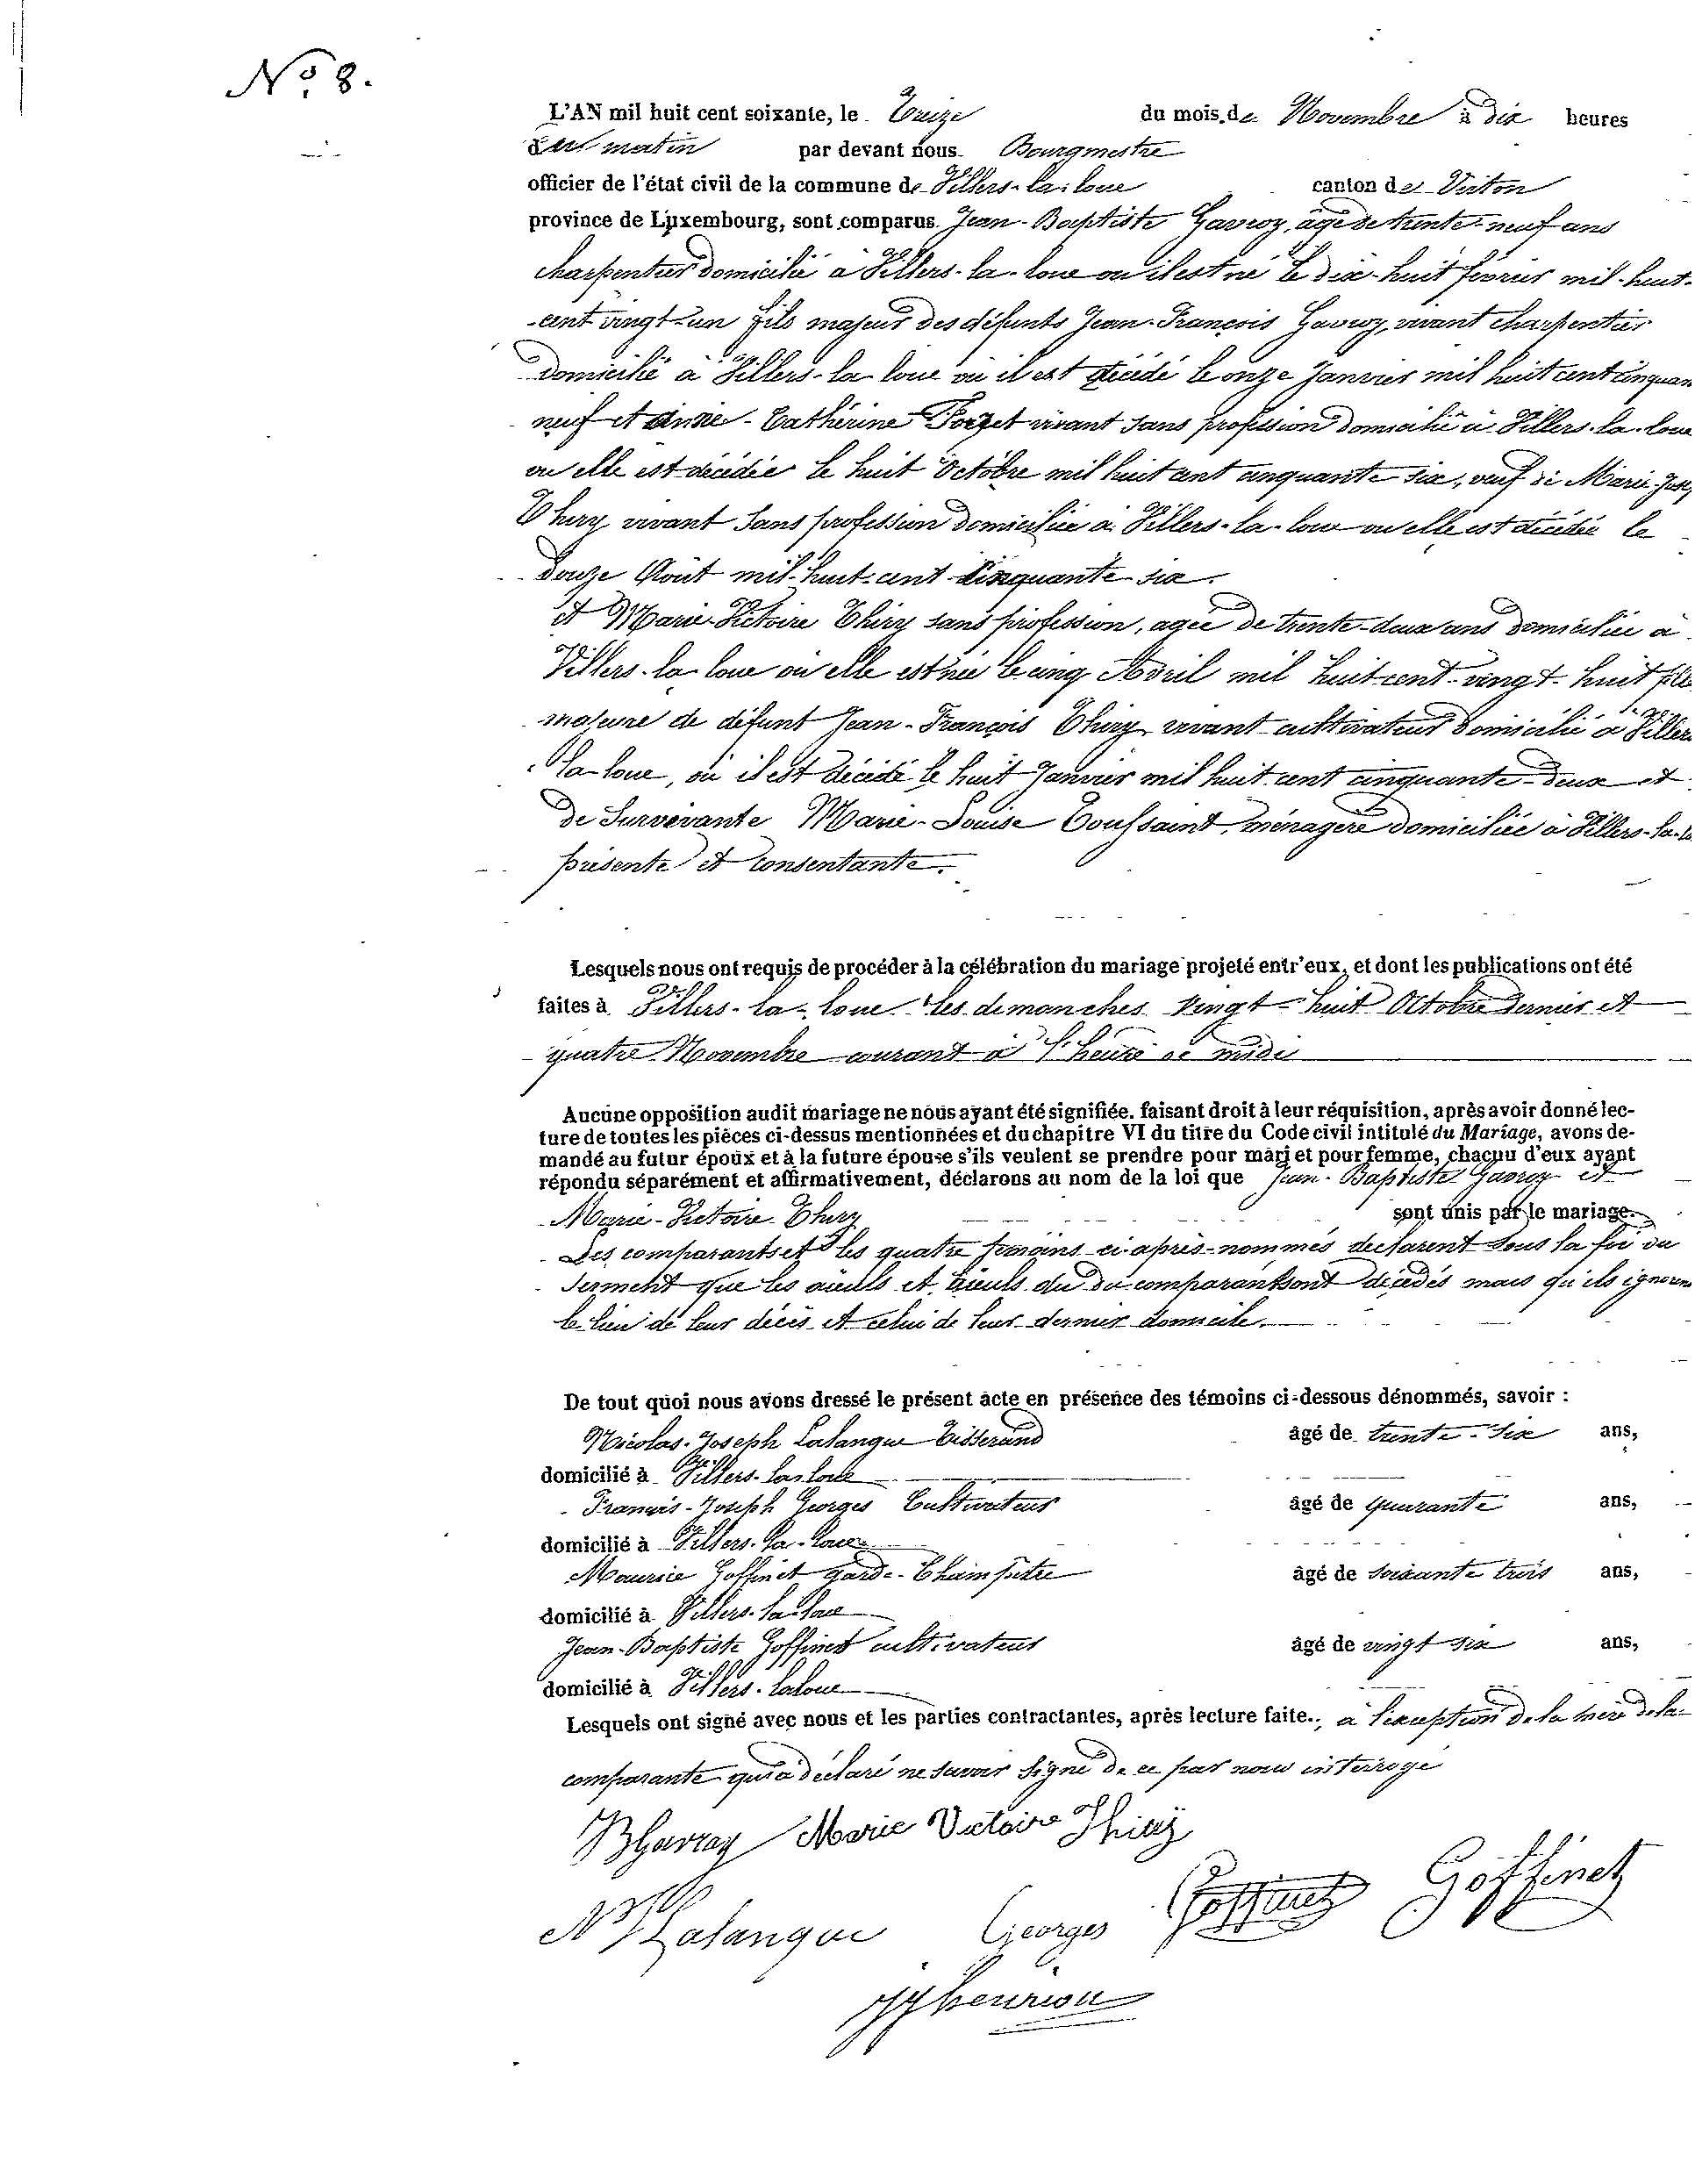 No. 8.
L'AN mil huit cent soixante, le Treize du mois de Novembre à dix heures
du matin par devant nous Bourgmestre
officier de l'état civil de la commune de Villers-la-loue canton de Virton
province de Luxembourg, sont comparus Jean-Baptiste Gavroy, âgé de trente-neuf ans
charpentier domicilié à Villers-la-loue ou il est né le dix-huit février mil-huit-
-cent vingt-un fils majeur des défunts Jean-François Gavroy, vivant charpentier
domicilié à Villers-la-loue où il est décédé le onze Janvier mil huit cent cinquan
neuf et anne-Cathérine Forget vivant sans profession domicilié à Villers-la-loue
ou elle est décédée le huit Octobre mil huit cent cinquante six, veuf de Marie-Jose
Thiry vivant sans profession domiciliée à Villers-la-loue ou elle est décédée le
douze Août mil-huit-cent cinquante-six.
et Marie-Victoire Thiry sans profession, agée de trente-deux ans domiciliée à
Villers-la-loue où elle est née le cinq Avril mil huit-cent-vingt-huit fille
majeure de défunt Jean-François Thiry vivant cultivateur domicilié à Villers
la-loue, où il est décédé le huit Janvier mil huit cent cinquante-deux et
de Survivante Marie-Louise Toussaint, ménagère domiciliée à Villers-la-lo
présente et consentante.
Lesquels nous ont requis de procéder à la célébration du mariage projeté entr'eux, et dont les publications ont été
faites à Villers-la-loue les dimanches vingt-huit Octobre dernier et
quatre Novembre courant à l'heure de midi
Aucune opposition audit mariage ne nous ayant été signifiée. faisant droit à leur réquisition, après avoir donné lec-
ture de toutes les pièces ci-dessus mentionnées et du chapitre VI du titre du Code civil intitulé du Mariage, avons de-
mandé au futur époux et à la future épouse s'ils veulent se prendre pour mari et pour femme, chacun d'eux ayant
répondu séparément et affirmativement, déclarons au nom de la loi que Jean-Baptiste Gavroy et
Marie-Victoire Thiry sont unis par le mariage.
Les comparants et les quatre témoins ci-après-nommés déclarent sous la foi du
serment que les aïeuls et aïeuls du comparant sont décédés mais qu'ils ignorent
le lieu de leur décès et celui de leur dernier domicile.
De tout quoi nous avons dressé le présent acte en présence des témoins ci-dessous dénommés, savoir :
Nicolas-Joseph Lalangue Tisserand âgé de trente-six ans,
domicilié à Villers-la-loue
François-Joseph Georges Cultivateur âgé de quarante ans,
domicilié à Villers-la-loue
Maurice Goffinet garde-Champêtre âgé de soixante trois ans,
domicilié à Villers-la-loue
Jean-Baptiste Goffinet cultivateur âgé de vingt six ans,
domicilié à Villers-laloue
Lesquels ont signé avec nous et les parties contractantes, après lecture faite., à l'exception de la mère de la
comparante qui a déclaré ne savoir signé de ce par nous interrogé
JBGavroy Marie Victoire Thiry
NJLalangue Georges Goffinet Goffinet
JJhenrion